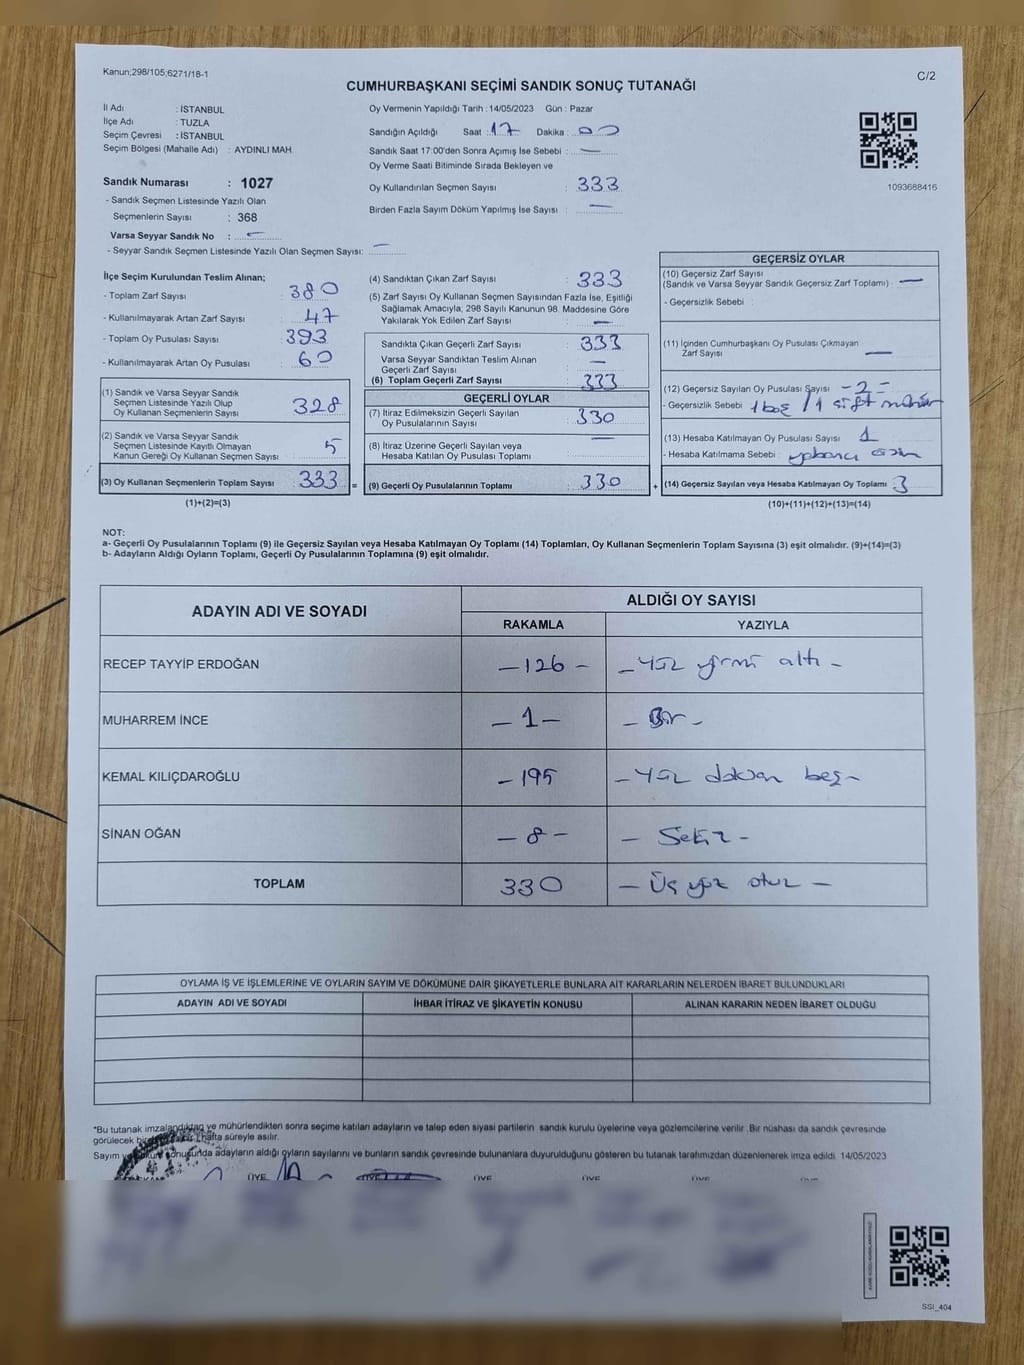 Kanun;298/105;6271/18-1
C/2
CUMHURBAŞKANI SEÇİMİ SANDIK SONUÇ TUTANAĞI
İl Adı : İSTANBUL
İlçe Adı : TUZLA
Seçim Çevresi : İSTANBUL
Seçim Bölgesi (Mahalle Adı) : AYDINLI MAH.
Sandık Numarası : 1027
- Sandık Seçmen Listesinde Yazılı Olan
Seçmenlerin Sayısı : 368
Varsa Seyyar Sandık No : —
- Seyyar Sandık Seçmen Listesinde Yazılı Olan Seçmen Sayısı: —
Oy Vermenin Yapıldığı Tarih : 14/05/2023 Gün : Pazar
Sandığın Açıldığı Saat : 17 Dakika : 00
Sandık Saat 17:00'den Sonra Açımış İse Sebebi : —
Oy Verme Saati Bitiminde Sırada Bekleyen ve
Oy Kullandırılan Seçmen Sayısı : 333
Birden Fazla Sayım Döküm Yapılmış İse Sayısı : —
1093688416
İlçe Seçim Kurulundan Teslim Alınan;
- Toplam Zarf Sayısı : 380
- Kullanılmayarak Artan Zarf Sayısı : 47
- Toplam Oy Pusulası Sayısı : 393
- Kullanılmayarak Artan Oy Pusulası : 60
(1) Sandık ve Varsa Seyyar Sandık
Seçmen Listesinde Yazılı Olup
Oy Kullanan Seçmenlerin Sayısı : 328
(2) Sandık ve Varsa Seyyar Sandık
Seçmen Listesinde Kayıtlı Olmayan
Kanun Gereği Oy Kullanan Seçmen Sayısı : 5
(3) Oy Kullanan Seçmenlerin Toplam Sayısı : 333
(1)+(2)=(3)
(4) Sandıktan Çıkan Zarf Sayısı : 333
(5) Zarf Sayısı Oy Kullanan Seçmen Sayısından Fazla İse, Eşitliği
Sağlamak Amacıyla, 298 Sayılı Kanunun 98. Maddesine Göre
Yakılarak Yok Edilen Zarf Sayısı : —
Sandıkta Çıkan Geçerli Zarf Sayısı : 333
Varsa Seyyar Sandıktan Teslim Alınan
Geçerli Zarf Sayısı : —
(6) Toplam Geçerli Zarf Sayısı : 333
GEÇERLİ OYLAR
(7) İtiraz Edilmeksizin Geçerli Sayılan
Oy Pusulalarının Sayısı : 330
(8) İtiraz Üzerine Geçerli Sayılan veya
Hesaba Katılan Oy Pusulası Toplamı : —
= (9) Geçerli Oy Pusulalarının Toplamı : 330 +
GEÇERSİZ OYLAR
(10) Geçersiz Zarf Sayısı
(Sandık ve Varsa Seyyar Sandık Geçersiz Zarf Toplamı) : —
- Geçersizlik Sebebi :
(11) İçinden Cumhurbaşkanı Oy Pusulası Çıkmayan
Zarf Sayısı : —
(12) Geçersiz Sayılan Oy Pusulası Sayısı : - 2 -
- Geçersizlik Sebebi : 1 boş / 1 çift mühür
(13) Hesaba Katılmayan Oy Pusulası Sayısı : 1
- Hesaba Katılmama Sebebi : yabancı
(14) Geçersiz Sayılan veya Hesaba Katılmayan Oy Toplamı : 3
(10)+(11)+(12)+(13)=(14)
NOT:
a- Geçerli Oy Pusulalarının Toplamı (9) ile Geçersiz Sayılan veya Hesaba Katılmayan Oy Toplamı (14) Toplamları, Oy Kullanan Seçmenlerin Toplam Sayısına (3) eşit olmalıdır. (9)+(14)=(3)
b- Adayların Aldığı Oyların Toplamı, Geçerli Oy Pusulalarının Toplamına (9) eşit olmalıdır.
ADAYIN ADI VE SOYADI
ALDIĞI OY SAYISI
RAKAMLA YAZIYLA
RECEP TAYYİP ERDOĞAN – 126 – – yüz yirmi altı –
MUHARREM İNCE – 1 – – Bir –
KEMAL KILIÇDAROĞLU – 195 – yüz doksan beş –
SİNAN OĞAN – 8 – – Sekiz –
TOPLAM 330 – Üç yüz otuz –
OYLAMA İŞ VE İŞLEMLERİNE VE OYLARIN SAYIM VE DÖKÜMÜNE DAİR ŞİKAYETLERLE BUNLARA AİT KARARLARIN NELERDEN İBARET BULUNDUKLARI
ADAYIN ADI VE SOYADI İHBAR İTİRAZ VE ŞİKAYETİN KONUSU ALINAN KARARIN NEDEN İBARET OLDUĞU
*Bu tutanak imzalandıktan ve mühürlendikten sonra seçime katılan adayların ve talep eden siyasi partilerin sandık kurulu üyelerine veya gözlemcilerine verilir .Bir nüshası da sandık çevresinde
görülecek bir yere bir hafta süreyle asılır.
Sayım ve döküm sonucunda adayların aldığı oyların sayılarını ve bunların sandık çevresinde bulunanlara duyurulduğunu gösteren bu tutanak tarafımızdan düzenlenerek imza edildi. 14/05/2023
ÜYE ÜYE ÜYE ÜYE ÜYE
SSİ_404